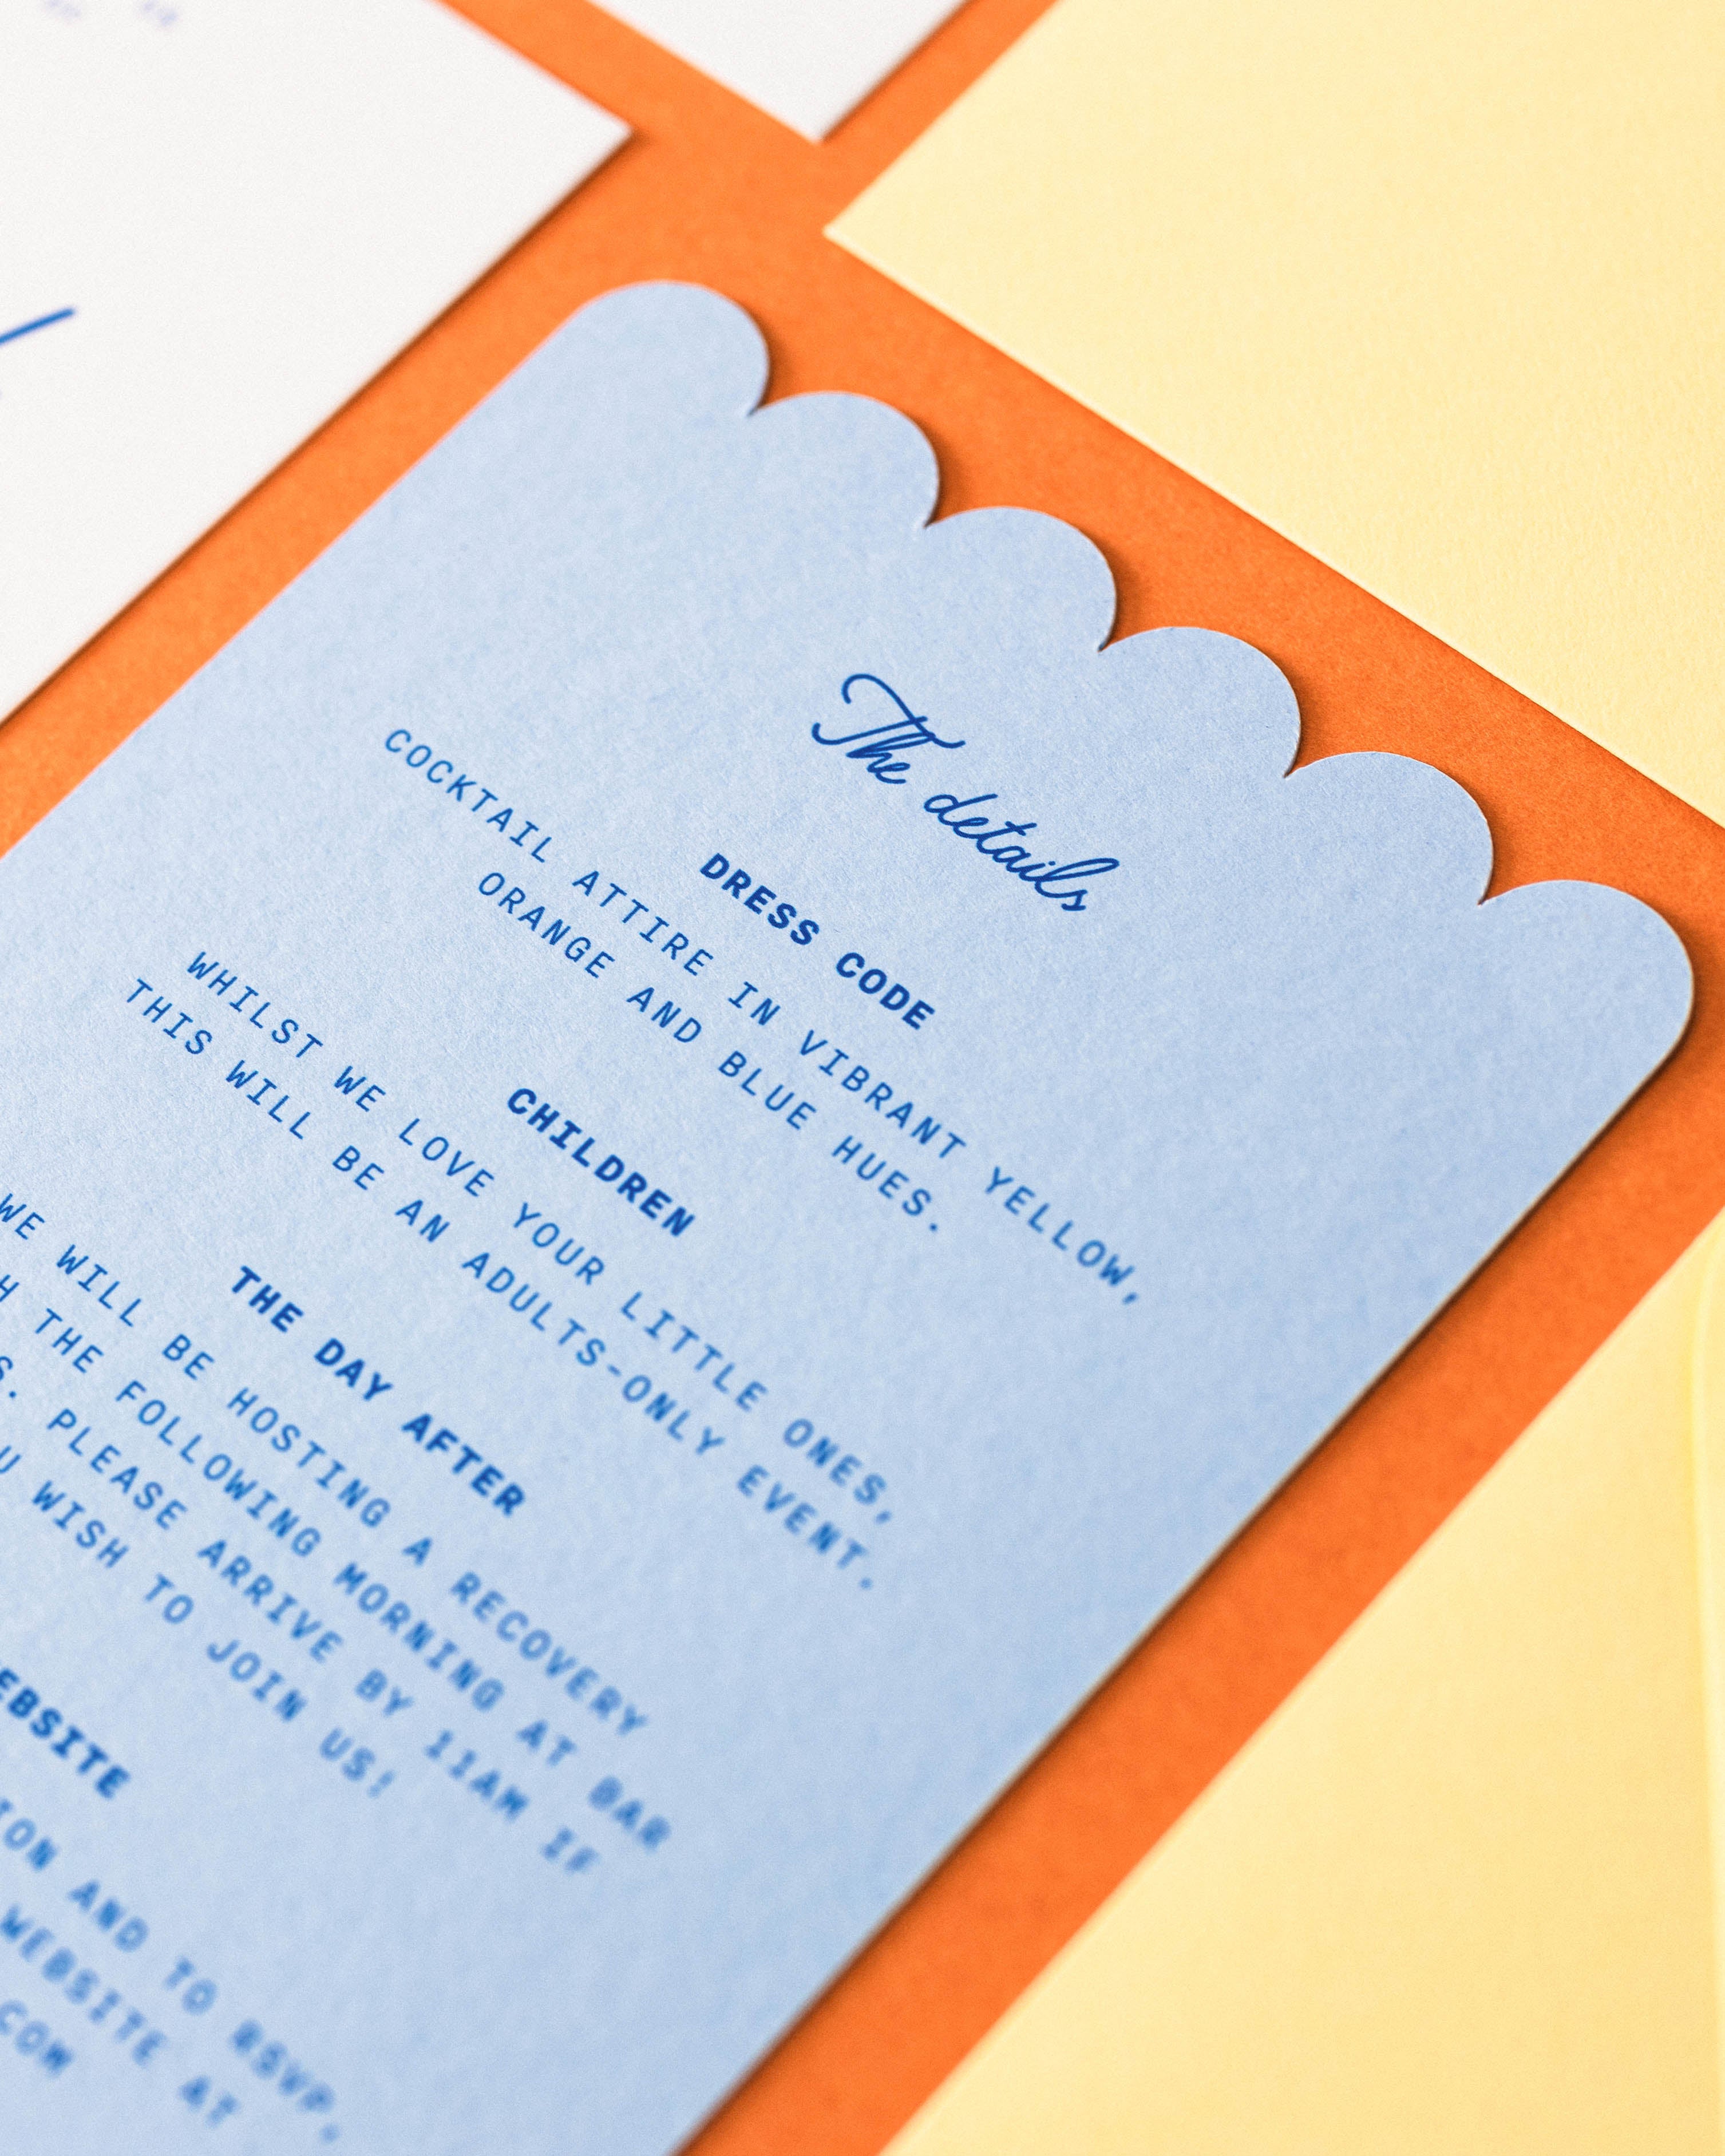 The details
DRESS CODE
COCKTAIL ATTIRE IN VIBRANT YELLOW,
ORANGE AND BLUE HUES.
CHILDREN
WHILST WE LOVE YOUR LITTLE ONES,
THIS WILL BE AN ADULTS-ONLY EVENT.
THE DAY AFTER
WE WILL BE HOSTING A RECOVERY
THE FOLLOWING MORNING AT BAR
PLEASE ARRIVE BY 11AM IF
WISH TO JOIN US!
AND TO RSVP,
WEBSITE AT